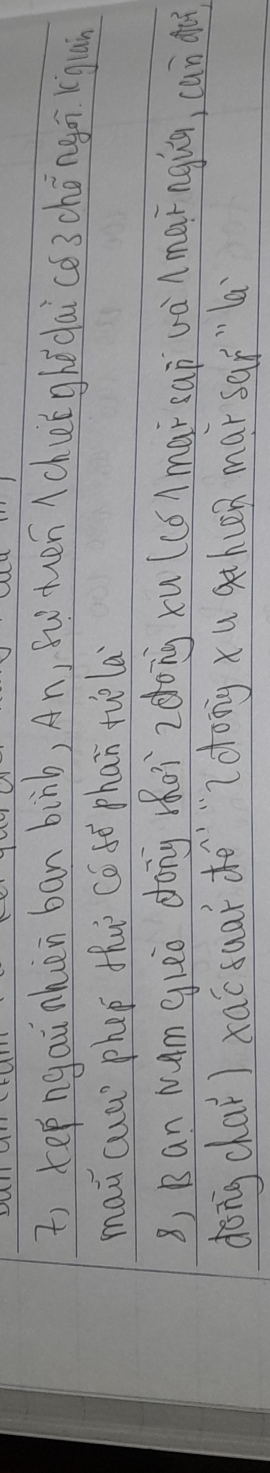 7, xếp ngẫu nhiên ban bình, An, Sư trên 1 chiếc ghế dài có 3 chỗ ngồi. K gian
mẫu của phép thử có số phần tử là
8, Ban Nam gieo đồng thời 2 đồng xu (có 1 mặt sấp và 1 mặt ngửa, cân đối,
đồng chất) xác suất để "2 đồng xu xuất hiện mặt sấp" là